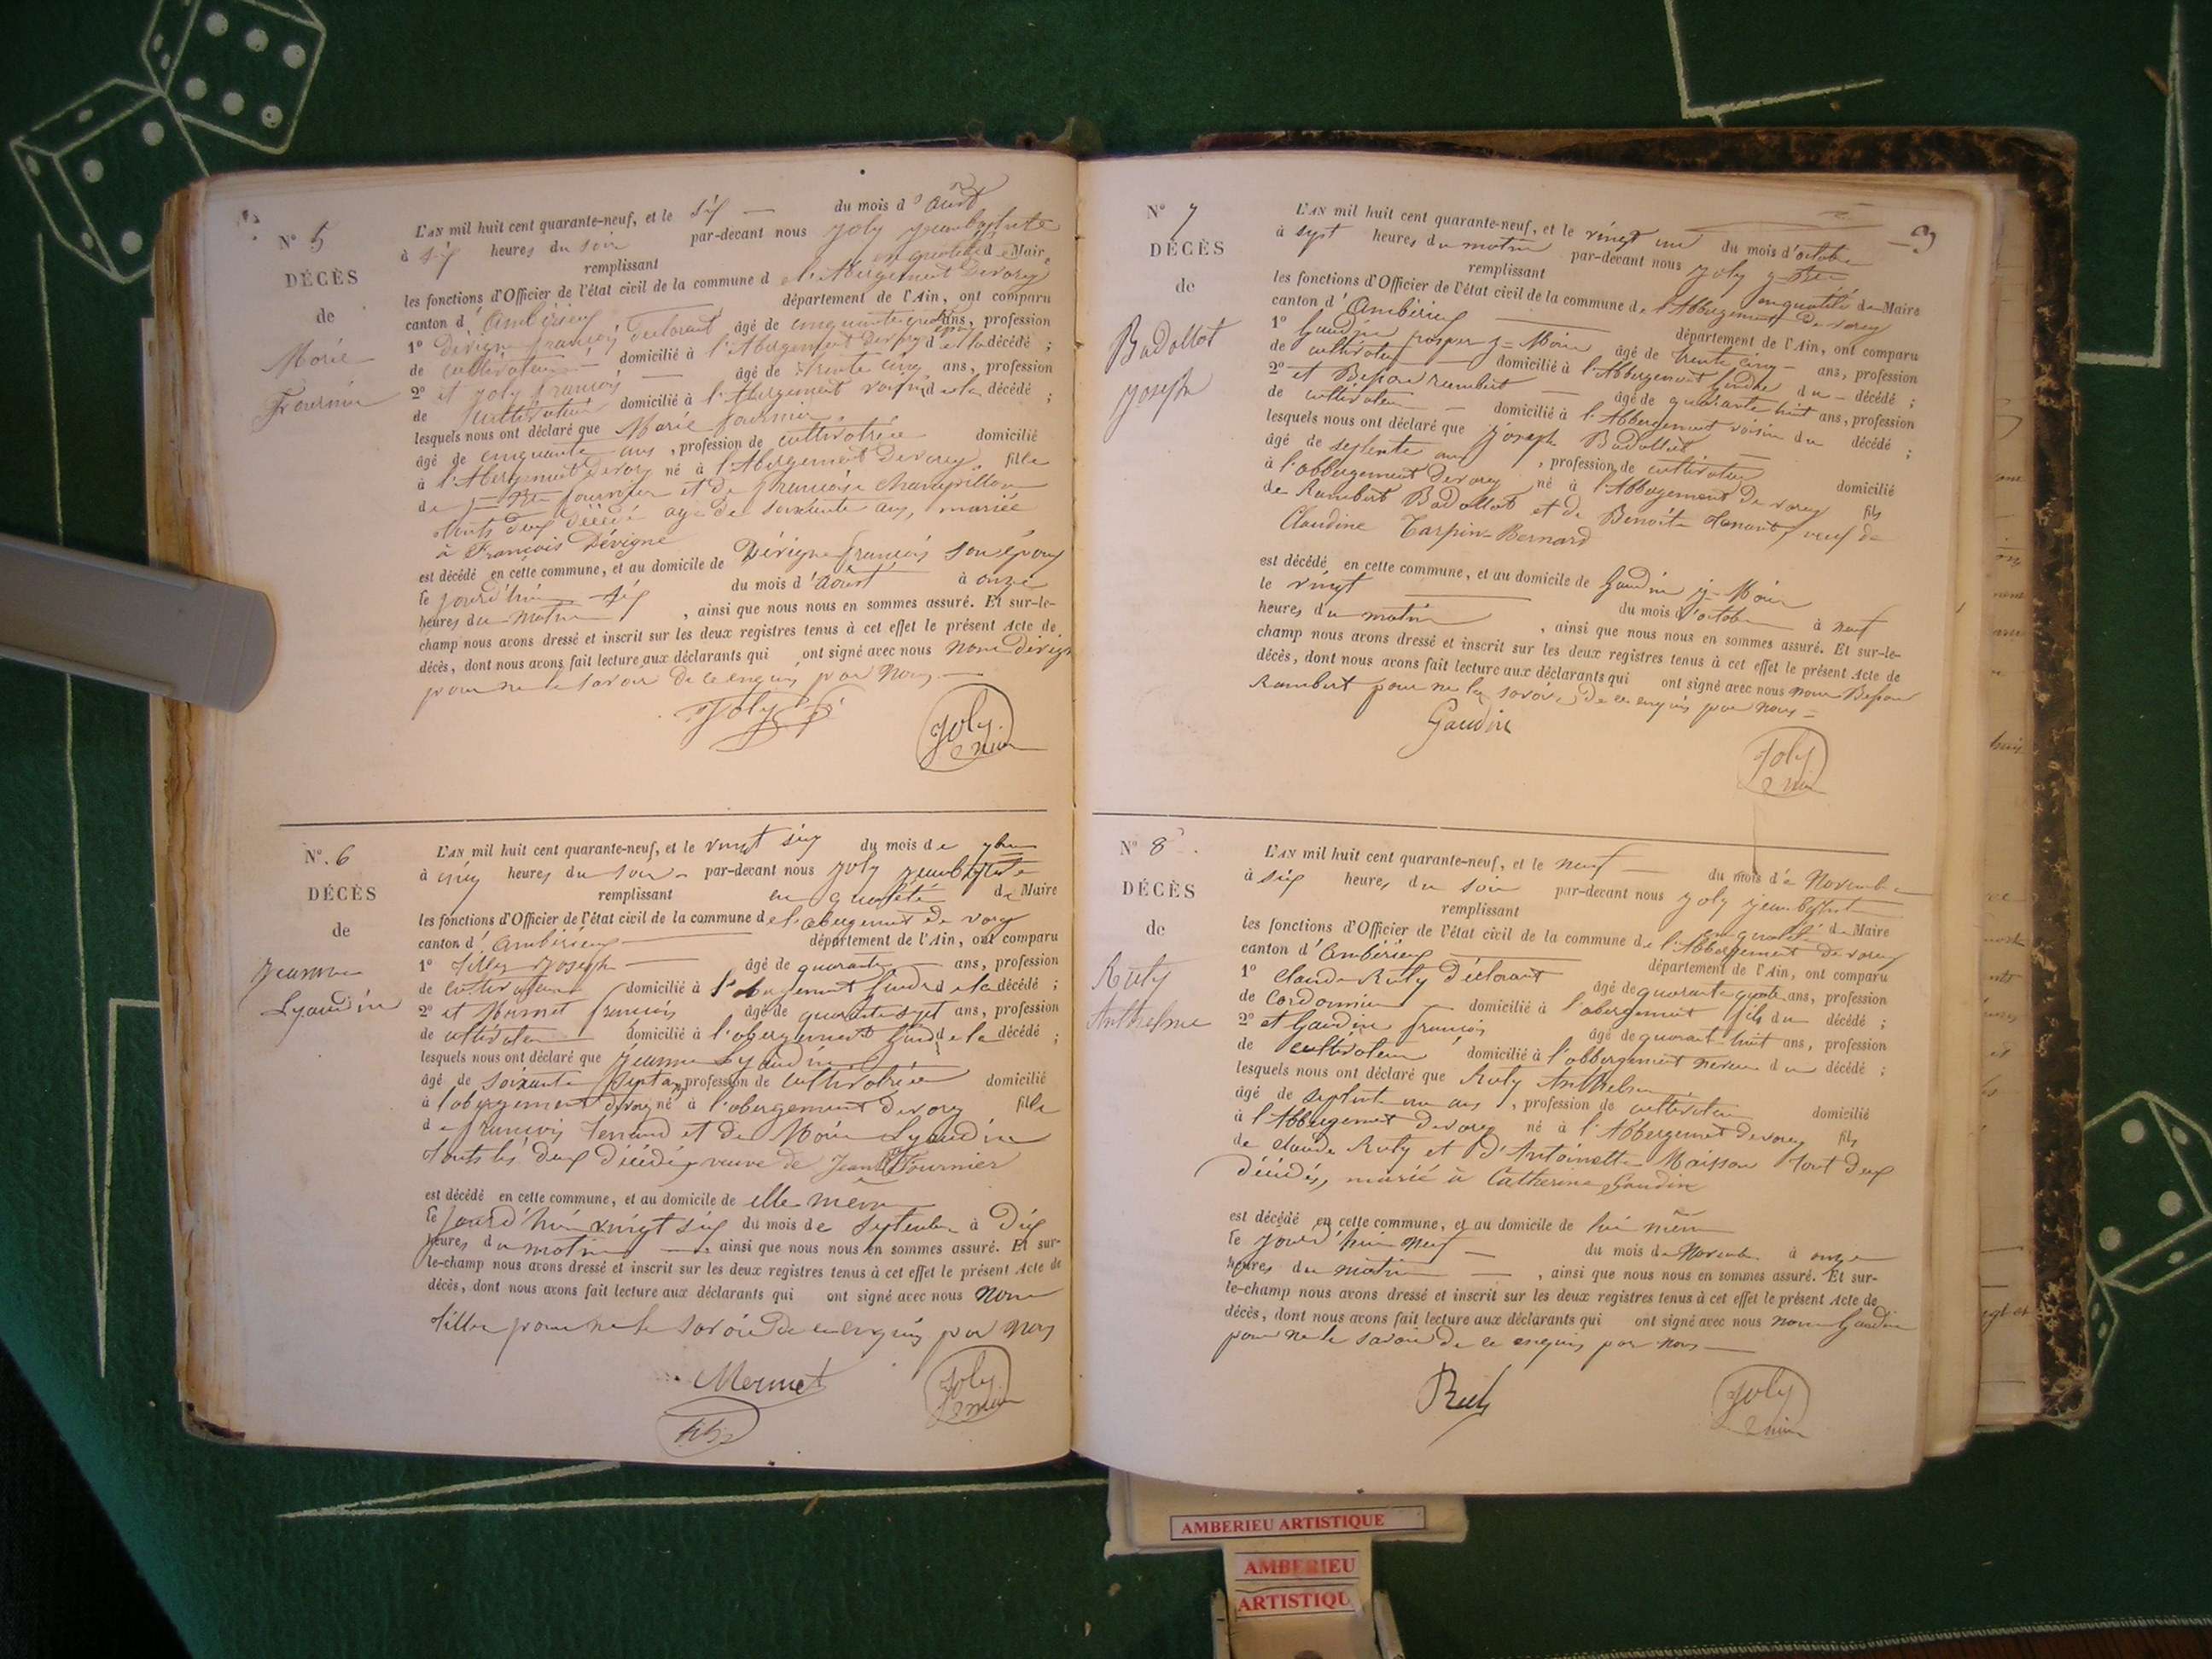 N° 5
DÉCÈS
de
Marie
Fournier
L'AN mil huit cent quarante-neuf, et le six du mois d'août
à six heures du soir par-devant nous Joly jeanbaptiste
remplissant en qualité de Maire
les fonctions d'Officier de l'état civil de la commune de l'Abergement Devarey
canton d'Ambérieux département de l'Ain, ont comparu
1° Dévigne françois déclarant âgé de cinquante ans, profession
de cultivateur domicilié à l'Abergement Devarey de la décédé ;
2° et Joly françois âgé de trente cinq ans, profession
de cultivateur domicilié à l'Abergement voisin de la décédé ;
lesquels nous ont déclaré que Marie fournier
âgé de cinquante ans, profession de cultivatrice domicilié
à l'Abergement Devarey né à l'Abergement Devarey fille
de fournier et de françoise
touts deux décédé age de soixante ans, mariée
à François Dévigne
est décédé en cette commune, et au domicile de Dévigne françois son époux
le jourd'hui six du mois d'Août à onze
heures du matin, ainsi que nous nous en sommes assuré. Et sur-le-
champ nous avons dressé et inscrit sur les deux registres tenus à cet effet le présent Acte de
décès, dont nous avons fait lecture aux déclarants qui ont signé avec nous non Dévigne
pour ne le savoir de ce enquis par Nous
Joly f
Joly
N° 6
DÉCÈS
de
Jeanne
Lyaudin
L'AN mil huit cent quarante-neuf, et le vingt six du mois de 7bre
à cinq heures du soir par-devant nous Joly jeanbaptiste
remplissant en qualité de Maire
les fonctions d'Officier de l'état civil de la commune de l'abergement de varey
canton d'ambérieux département de l'Ain, ont comparu
1° Joseph âgé de quarante ans, profession
de cultivateur domicilié à l'abergement de la décédé ;
2° et Mermet françois âgé de quarante sept ans, profession
de cultivateur domicilié à l'abergement de la décédé ;
lesquels nous ont déclaré que Jeanne Lyaudin
âgé de soixante sept ans, profession de cultivatrice domicilié
à l'abergement devarey né à l'abergement devarey fille
de françois et de Marie Lyaudin
touts les deux décédés veuve de Jean Fournier
est décédé en cette commune, et au domicile de elle meme
le jourd'hui vingt six du mois de septembre à dix
heures du matin, ainsi que nous nous en sommes assuré. Et sur-
le-champ nous avons dressé et inscrit sur les deux registres tenus à cet effet le présent Acte de
décès, dont nous avons fait lecture aux déclarants qui ont signé avec nous non
pour ne le savoir de ce enquis par nous
Mermet
Joly
N° 7
DÉCÈS
de
Badollat
joseph
L'AN mil huit cent quarante-neuf, et le vingt un du mois d'octobre
à sept heures du matin par-devant nous Joly
remplissant en qualité de Maire
les fonctions d'Officier de l'état civil de la commune de l'Abbergement Devarey
canton d'Ambérieux département de l'Ain, ont comparu
1° Gaudin prosper j=Marie âgé de trente cinq ans, profession
de cultivateur domicilié à l'Abbergement Gendre du décédé ;
2° et Besson rambert âgé de quarante huit ans, profession
de cultivateur domicilié à l'Abbergement voisin du décédé ;
lesquels nous ont déclaré que joseph Badollat
âgé de septente ans, profession de cultivateur domicilié
à l'abbergement Devarey né à l'Abbergement Devarey fils
de Rambert Badollat et de Benoite Tenant, veuf de
Claudine Tarpin-Bernard
est décédé en cette commune, et au domicile de Gaudin j-Marie
le vingt du mois d'octobre à neuf
heures du matin, ainsi que nous nous en sommes assuré. Et sur-le-
champ nous avons dressé et inscrit sur les deux registres tenus à cet effet le présent Acte de
décès, dont nous avons fait lecture aux déclarants qui ont signé avec nous non Besson
Rambert pour ne le savoir de ce enquis par Nous
Gaudin
Joly
N° 8
DÉCÈS
de
Ruty
Anthelme
L'AN mil huit cent quarante-neuf, et le neuf du mois de Novembre
à six heures du soir par-devant nous Joly jeanbaptiste
remplissant en qualité de Maire
les fonctions d'Officier de l'état civil de la commune de l'Abbergement Devarey
canton d'Ambérieux département de l'Ain, ont comparu
1° Claude Ruty déclarant âgé de quarante quatre ans, profession
de Cordonnier domicilié à l'abergement fils du décédé ;
2° et Gaudin françois âgé de quarant-huit ans, profession
de cultivateur domicilié à l'abbergement neveu du décédé ;
lesquels nous ont déclaré que Ruty Anthelme
âgé de septente un ans, profession de cultivateur domicilié
à l'Abbergement Devarey né à l'Abbergement Devarey fils
de Claude Ruty et D'Antoinette Maisson tout deux
décédés, marié à Catherine Gaudin
est décédé en cette commune, et au domicile de lui même
le jourd'hui neuf du mois de Novembre à onze
heures du matin, ainsi que nous nous en sommes assuré. Et sur-
le-champ nous avons dressé et inscrit sur les deux registres tenus à cet effet le présent Acte de
décès, dont nous avons fait lecture aux déclarants qui ont signé avec nous non Gaudin
pour ne le savoir de ce enquis par nous
Ruty
Joly
AMBERIEU ARTISTIQUE
AMBERIEU
ARTISTIQU